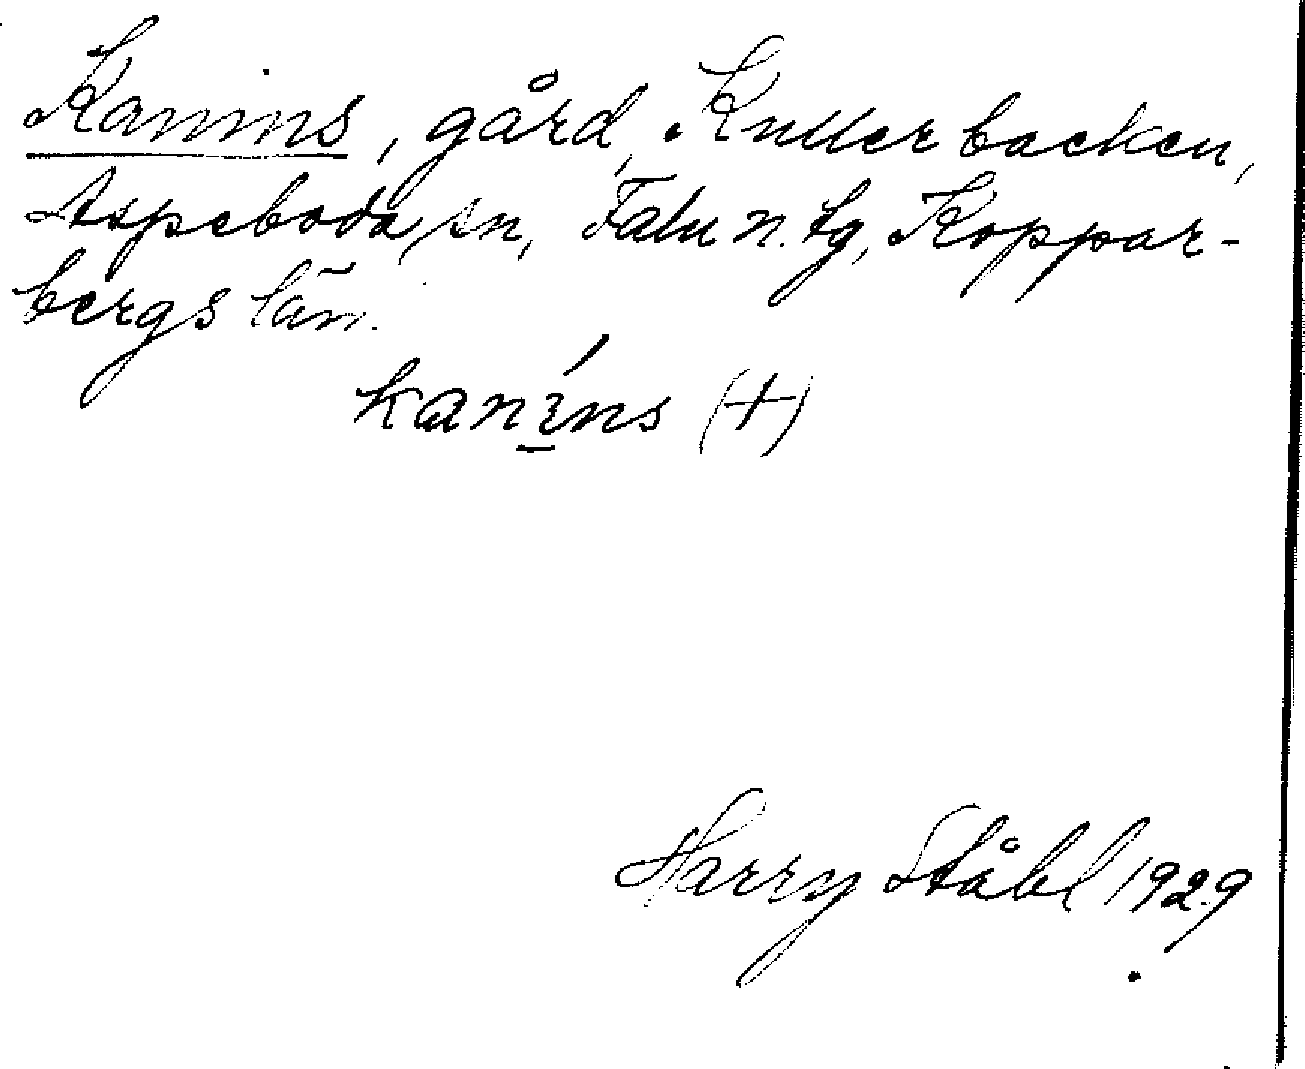 Kanins, gård, Kullerbacken,
Aspeboda sn, Falu n. tg, Koppar-
bergs län.
kanins (+)
Harry Ståhl 1929